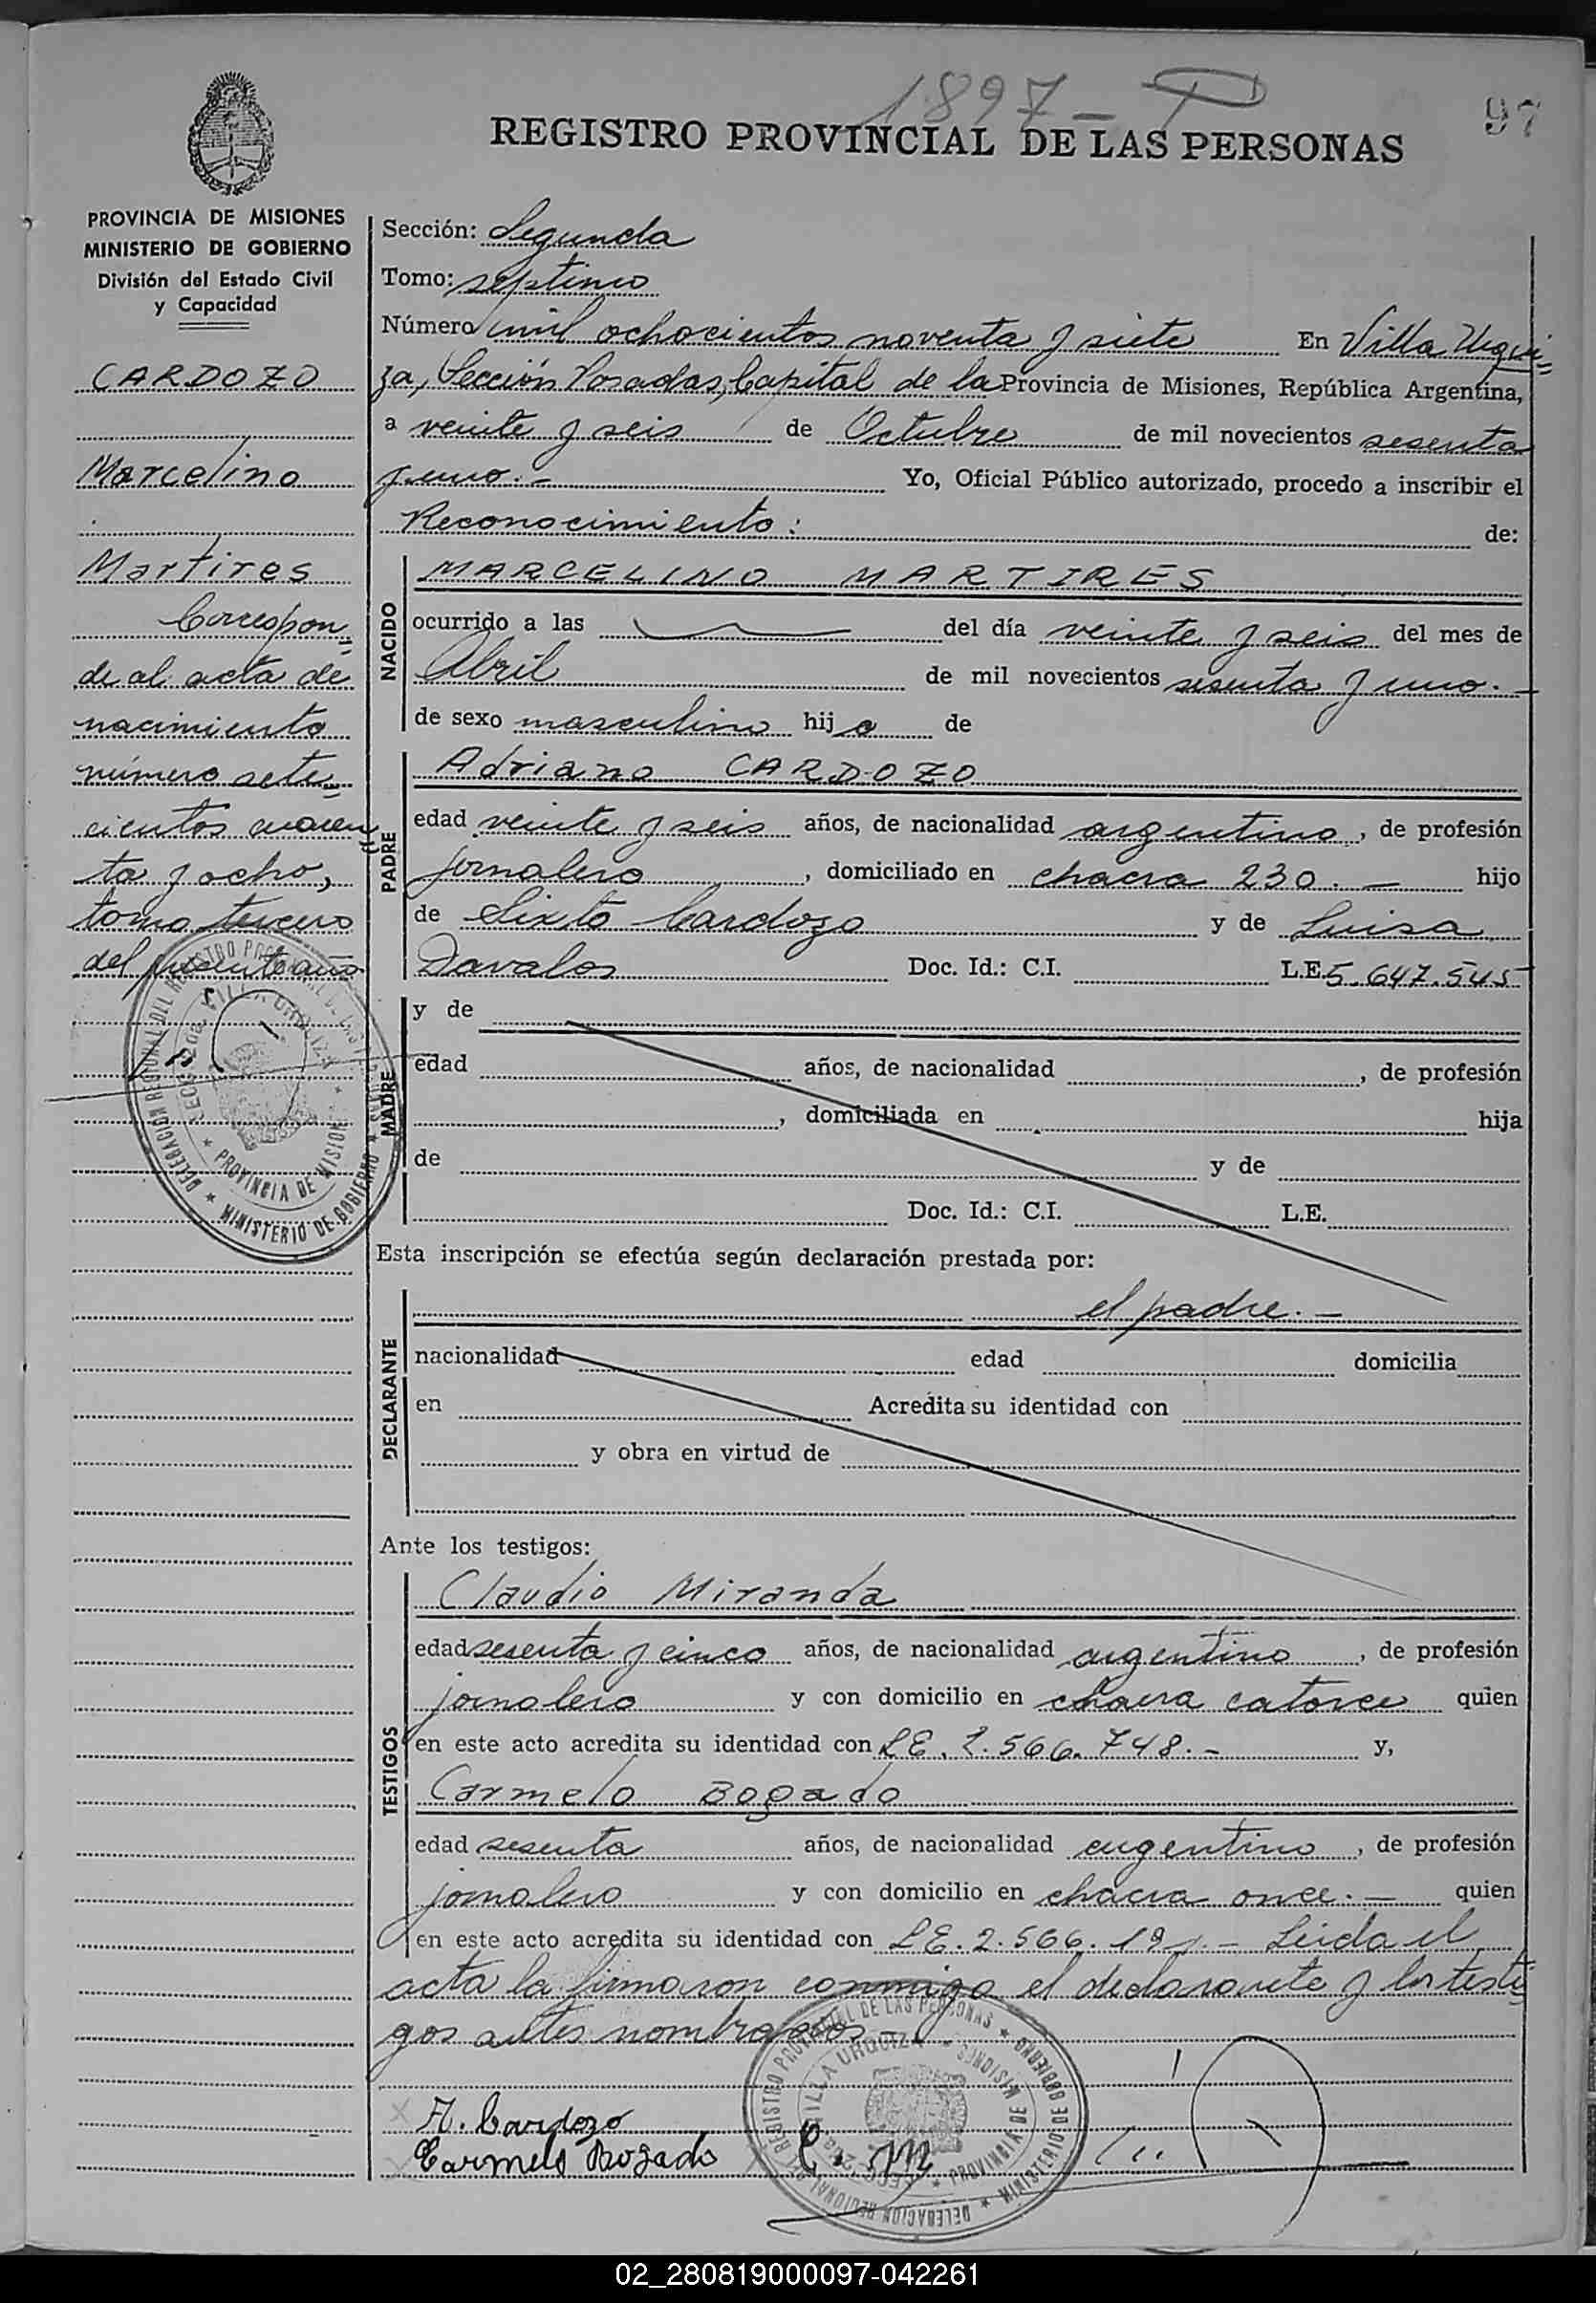 1897 - P
97
REGISTRO PROVINCIAL DE LAS PERSONAS
PROVINCIA DE MISIONES
MINISTERIO DE GOBIERNO
División del Estado Civil
y Capacidad
CARDOZO
Marcelino
Martires
Correspon=
de al acta de
nacimiento
número sete=
cientos cuaren=
ta y ocho,
tomo tercero
del presente año
Sección: Segunda
Tomo: septimo
Número mil ochocientos noventa y siete En Villa Urqui=
za, Sección Posadas, Capital de la Provincia de Misiones, República Argentina,
a veinte y seis de Octubre de mil novecientos sesenta
y uno.- Yo, Oficial Público autorizado, procedo a inscribir el
Reconocimiento: de:
NACIDO
MARCELINO MARTIRES
ocurrido a las del día veinte y seis del mes de
Abril de mil novecientos sesenta y uno.-
de sexo masculino hijo de
PADRE
Adriano CARDOZO
edad veinte y seis años, de nacionalidad argentino, de profesión
jornalero, domiciliado en chacra 230.- hijo
de Sixto Cardozo y de Luisa
Davalos Doc. Id.: C.I. L.E. 5.647.545
MADRE
y de
edad años, de nacionalidad , de profesión
, domiciliada en hija
de y de
Doc. Id.: C.I. L.E.
Esta inscripción se efectúa según declaración prestada por:
DECLARANTE
el padre.-
nacionalidad edad domicilia
en Acredita su identidad con
y obra en virtud de
Ante los testigos:
TESTIGOS
Claudio Miranda
edad sesenta y cinco años, de nacionalidad argentino, de profesión
jornalero y con domicilio en chacra catorce quien
en este acto acredita su identidad con LE. 2.566.748.- y,
Carmelo Bogado
edad sesenta años, de nacionalidad argentino, de profesión
jornalero y con domicilio en chacra once.- quien
en este acto acredita su identidad con LE. 2.566. Leida el
acta la firmaron conmigo el declarante y los testi
gos antes nombrados.-
A. Cardozo
Carmelo Bogado C. M
DELEGACION REGIONAL DEL REGISTRO PROVINCIAL DE LAS PERSONAS * MINISTERIO DE GOBIERNO *
VILLA URQUIZA * PROVINCIA DE MISIONES *
02_280819000097-042261